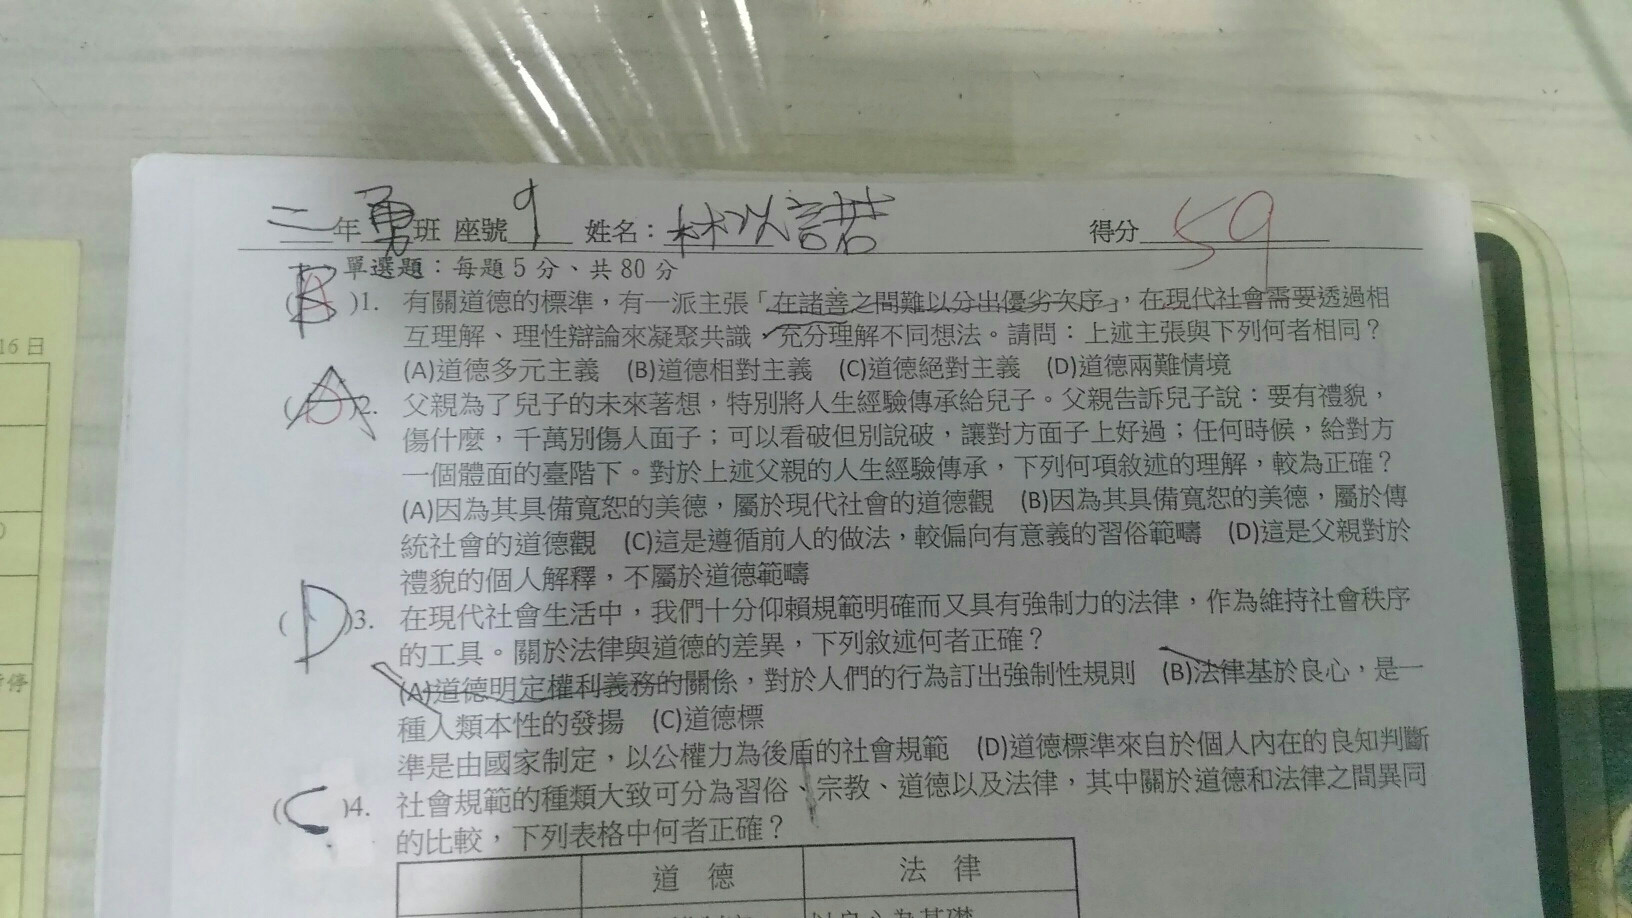 二年勇班 座號9 姓名：林以諾 得分59
單選題：每題5分、共80分
(B)1. 有關道德的標準，有一派主張「在諸善之間難以分出優劣次序」，在現代社會需要透過相
互理解、理性辯論來凝聚共識，充分理解不同想法。請問：上述主張與下列何者相同？
(A)道德多元主義 (B)道德相對主義 (C)道德絕對主義 (D)道德兩難情境
(A)2. 父親為了兒子的未來著想，特別將人生經驗傳承給兒子。父親告訴兒子說：要有禮貌，
傷什麼，千萬別傷人面子；可以看破但別說破，讓對方面子上好過；任何時候，給對方
一個體面的臺階下。對於上述父親的人生經驗傳承，下列何項敘述的理解，較為正確？
(A)因為其具備寬恕的美德，屬於現代社會的道德觀 (B)因為其具備寬恕的美德，屬於傳
統社會的道德觀 (C)這是遵循前人的做法，較偏向有意義的習俗範疇 (D)這是父親對於
禮貌的個人解釋，不屬於道德範疇
(D)3. 在現代社會生活中，我們十分仰賴規範明確而又具有強制力的法律，作為維持社會秩序
的工具。關於法律與道德的差異，下列敘述何者正確？
(A)道德明定權利義務的關係，對於人們的行為訂出強制性規則 (B)法律基於良心，是一
種人類本性的發揚 (C)道德標
準是由國家制定，以公權力為後盾的社會規範 (D)道德標準來自於個人內在的良知判斷
(C)4. 社會規範的種類大致可分為習俗、宗教、道德以及法律，其中關於道德和法律之間異同
的比較，下列表格中何者正確？
道 德 法 律
以良心為基礎
16日
停